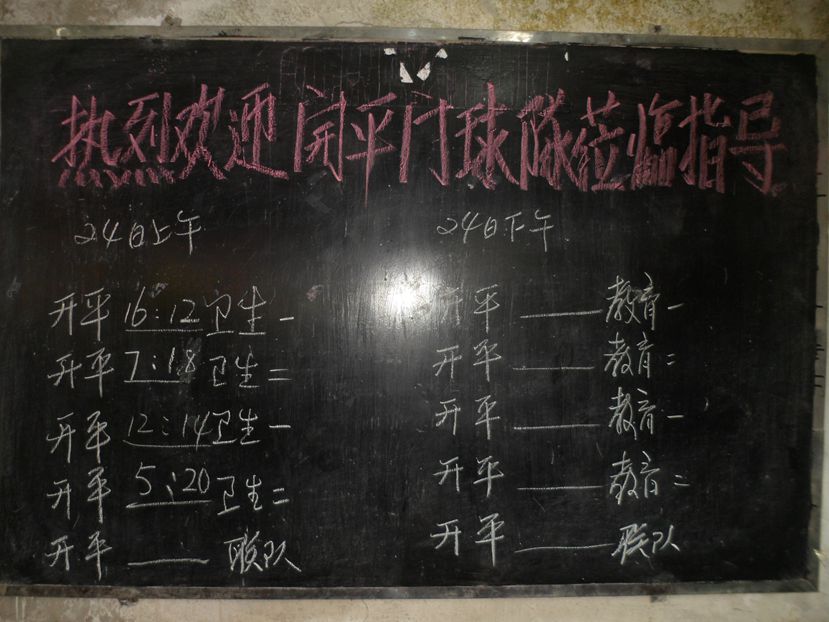 热烈欢迎开平门球队莅临指导
24日上午
开平 16:12 卫生一
开平 7:18 卫生二
开平 12:14 卫生一
开平 5:20 卫生二
开平 ____ 联队
24日下午
开平 ____ 教育一
开平 ____ 教育二
开平 ____ 教育一
开平 ____ 教育二
开平 ____ 联队